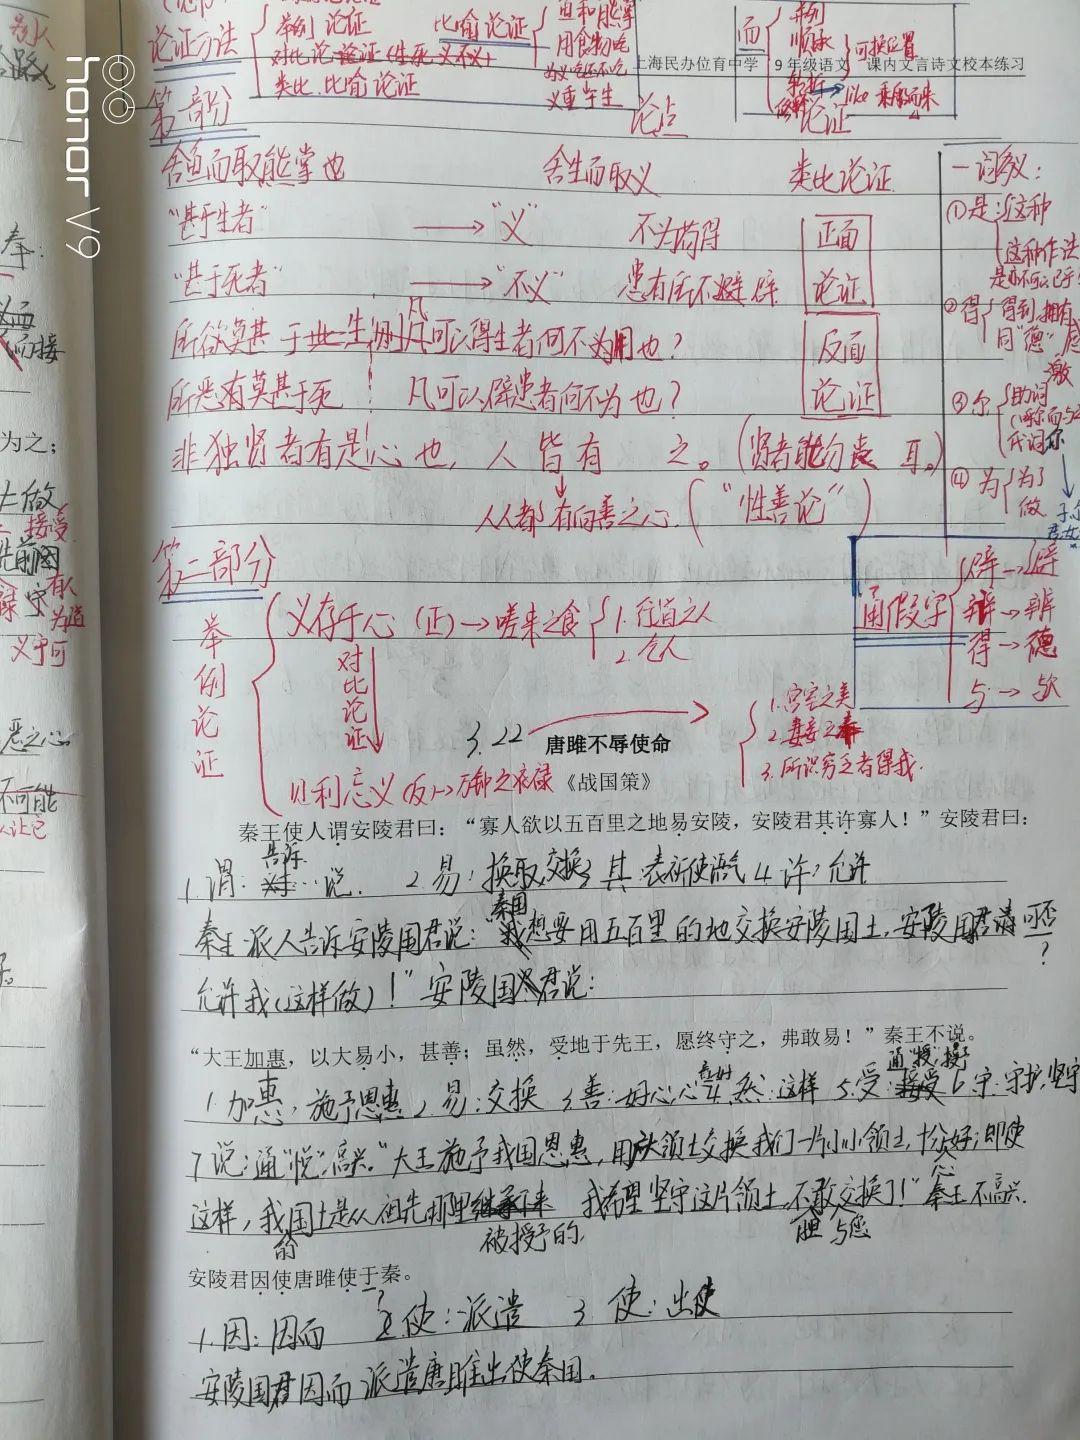 honor V9
论证方法
举例论证
对比论证（生死 义不义）
类比．比喻论证
比喻论证
鱼和熊掌
义重于生
而
并列
顺承
可换位置
转折
修饰
like 乘船而来
上海民办位育中学 9年级语文 课内文言诗文校本练习
第一部分
论点
论证
舍鱼而取熊掌也 舍生而取义 类比论证
"甚于生者" → "义" 不为苟得 正面
"甚于死者" → "不义" 患有所不避 论证
所欲莫甚于生，则凡可以得生者何不为用也？ 反面
所恶有莫甚于死 凡可以辟患者何不为也？ 论证
非独贤者有是心也，人皆有之。（贤者能勿丧耳。）
人人都有向善之心．（"性善论"）
一词多义：
①是：这种
这种作法
是亦不可以已乎
②得 得到．拥有
同"德" 感激
③尔 助词
代词 你
④为 为了
做
第二部分
通假字
辟→避
辨→辨
得→德
与→欤
举例论证
义存于心（正）→嗟来之食
1.行道之人
2.乞人
对比论证
见利忘义（反）→万钟之衣禄
1.宫室之美
2.妻妾之奉
3.所识穷乏者得我．
3.22 唐雎不辱使命
《战国策》
秦王使人谓安陵君曰："寡人欲以五百里之地易安陵，安陵君其许寡人！"安陵君曰：
告诉
1.谓：说． 2易：换取，交换 3其：表祈使语气 4许：允许
秦国
秦王派人告诉安陵国君说："我想要用五百里的地交换安陵国土，安陵国君请可否
允许我（这样做）！"安陵国君说：
"大王加惠，以大易小，甚善；虽然，受地于先王，愿终守之，弗敢易！"秦王不说。
通"授"，授予
1.加惠，施予恩惠 2易：交换 3善：好心 4.然：这样 5.受：接受 6守：守护，坚守
7说：通"悦"，高兴．"大王施予我国恩惠，用大领土交换我们一片小小领土，十分好心；即使
这样，我国土是从祖先那里继承下来 我希望坚守这片领土，不敢交换了！"秦王不高兴．
的
被授予的，
胆 与您
安陵君因使唐雎使于秦。
1.因：因而 2使：派遣 3.使：出使
安陵国君因而派遣唐雎出使秦国。
奉：
而接
为之；
上做
接受
先前因
有人
义于可
恶之心
不可能